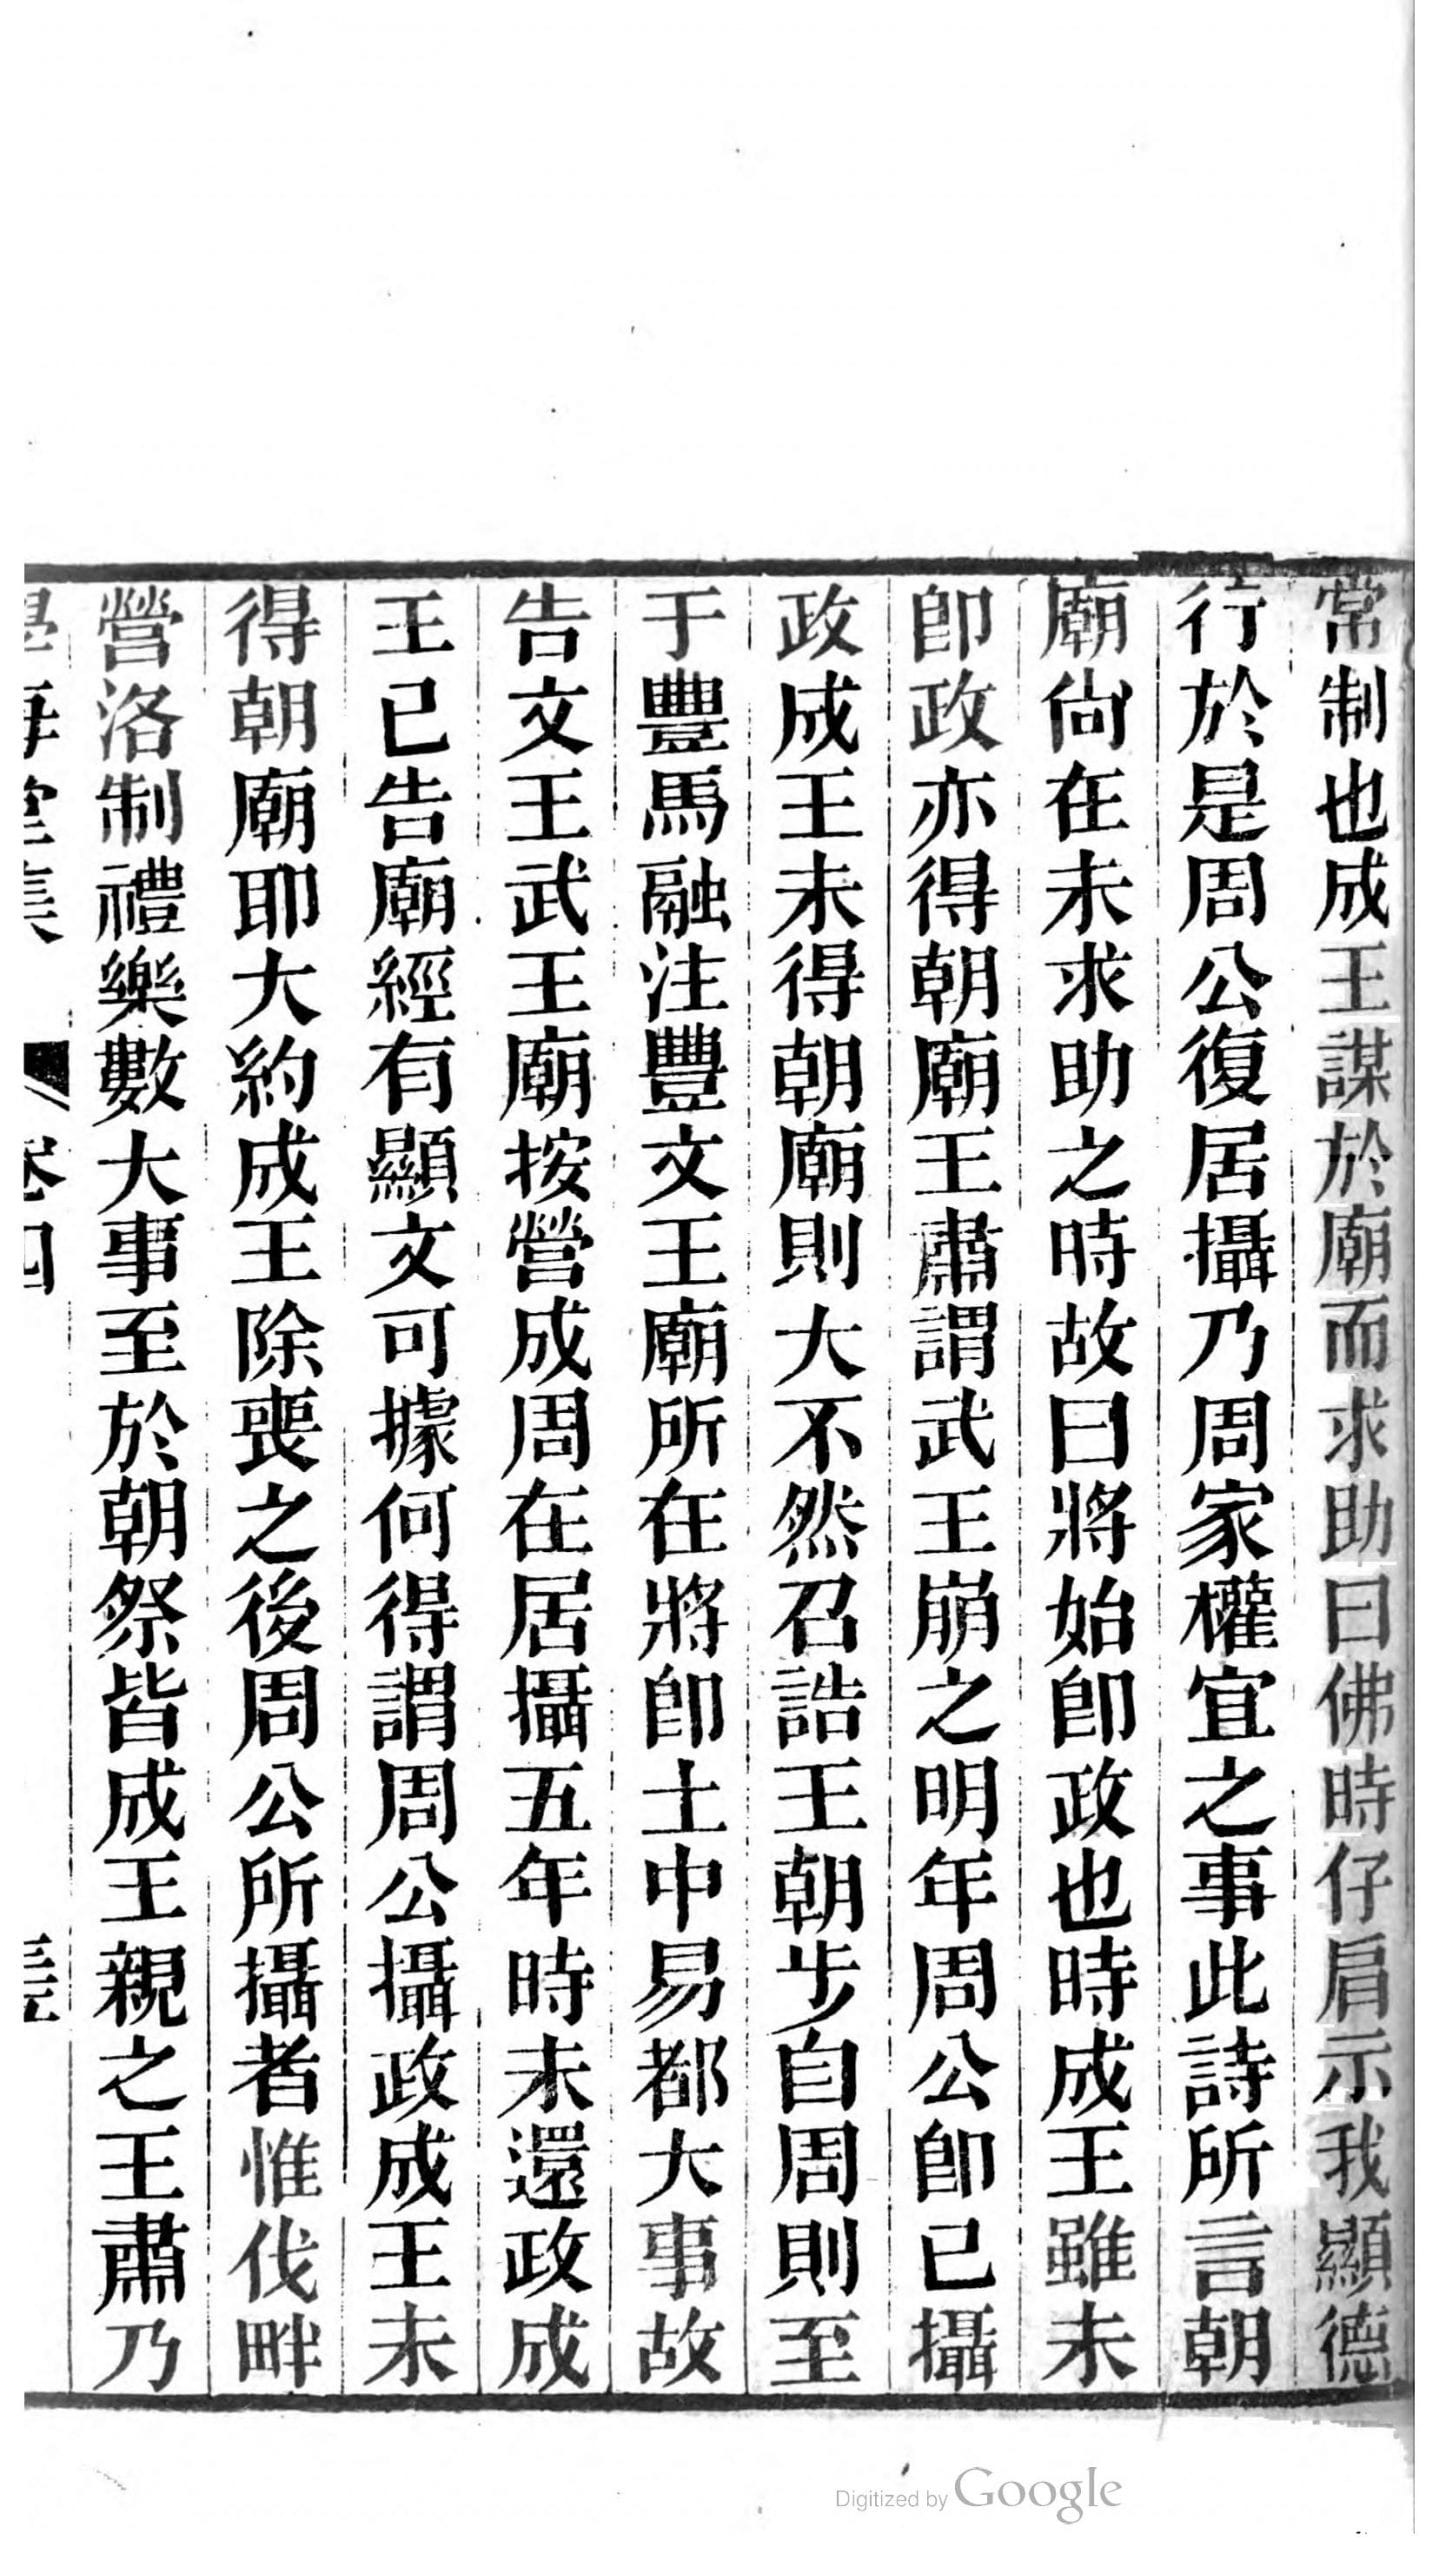 常制也成王謀於廟而求助曰佛時仔肩示我顯德
行於是周公復居攝乃周家權宜之事此詩所言朝
廟尙在未求助之時故曰將始卽政也時成王雖未
卽政亦得朝廟王肅謂武王崩之明年周公卽已攝
政成王未得朝廟則大不然召誥王朝步自周則至
于豐馬融注豐文王廟所在將卽土中易都大事故
告文王武王廟按營成周在居攝五年時未還政成
王已告廟經有顯文可據何得謂周公攝政成王未
得朝廟耶大約成王除喪之後周公所攝者惟伐畔
營洛制禮樂數大事至於朝祭皆成王親之王肅乃
學海堂集 卷四
Digitized by Google